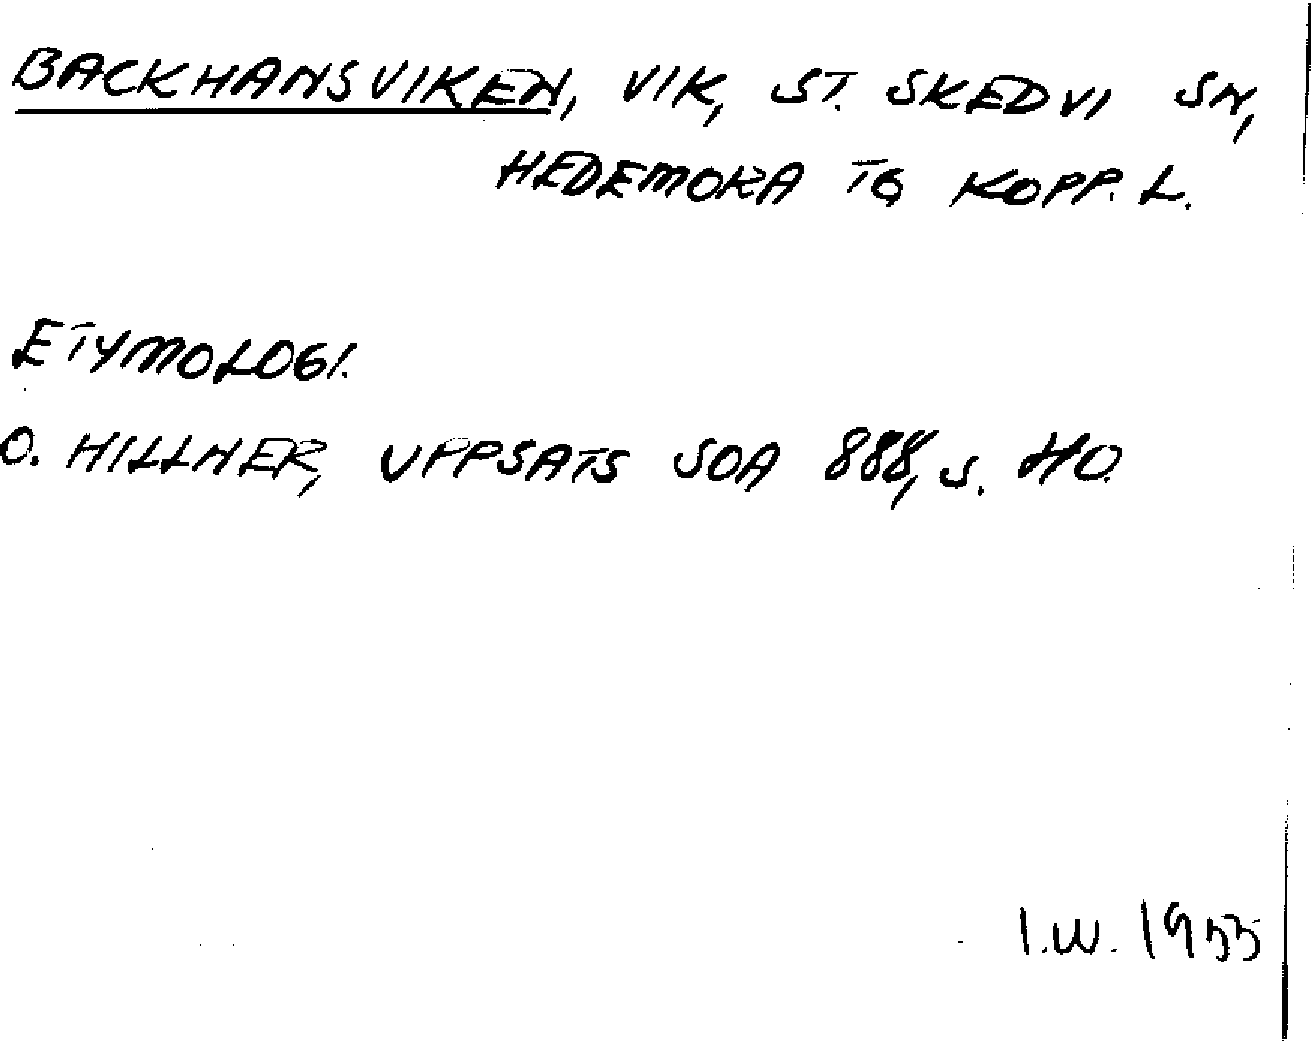 BACKHANSVIKEN, VIK, ST. SKEDVI SN,
HEDEMORA TG KOPP. L.
ETYMOLOGI.
O. HILLNER, UPPSATS SOA 888, S. 110.
I.W. 1955